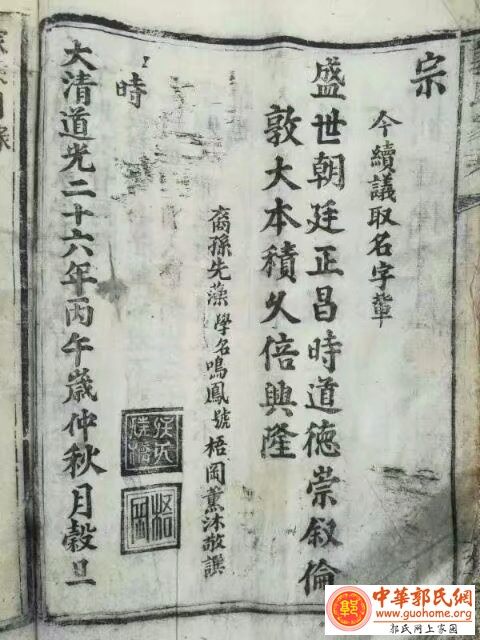 宗
今續議取名字輩
盛世朝廷正昌時道德崇叙倫
敦大本積久倍興隆
裔孫先藻學名鳴鳳號梧岡薰沐敬譔
時
大清道光二十六年丙午歲仲秋月穀旦
梧岡
中華郭氏網
www.guohome.org
郭氏网上家園